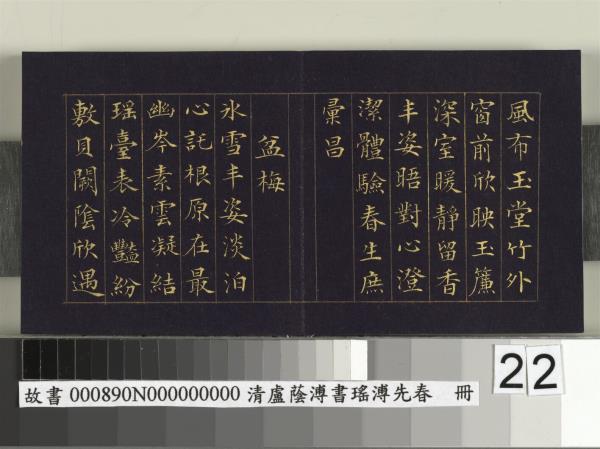 風布玉堂竹外
窗前欣映玉簾
深室暖靜留香
丰姿晤對心澄
潔體驗春生庶
彙昌
盆梅
氷雪丰姿淡泊
心託根原在最
幽岑素雲凝結
瑶臺表冷豔紛
敷貝闕陰欣遇
22
故書 000890N000000000 清盧蔭溥書瑤溥先春 冊